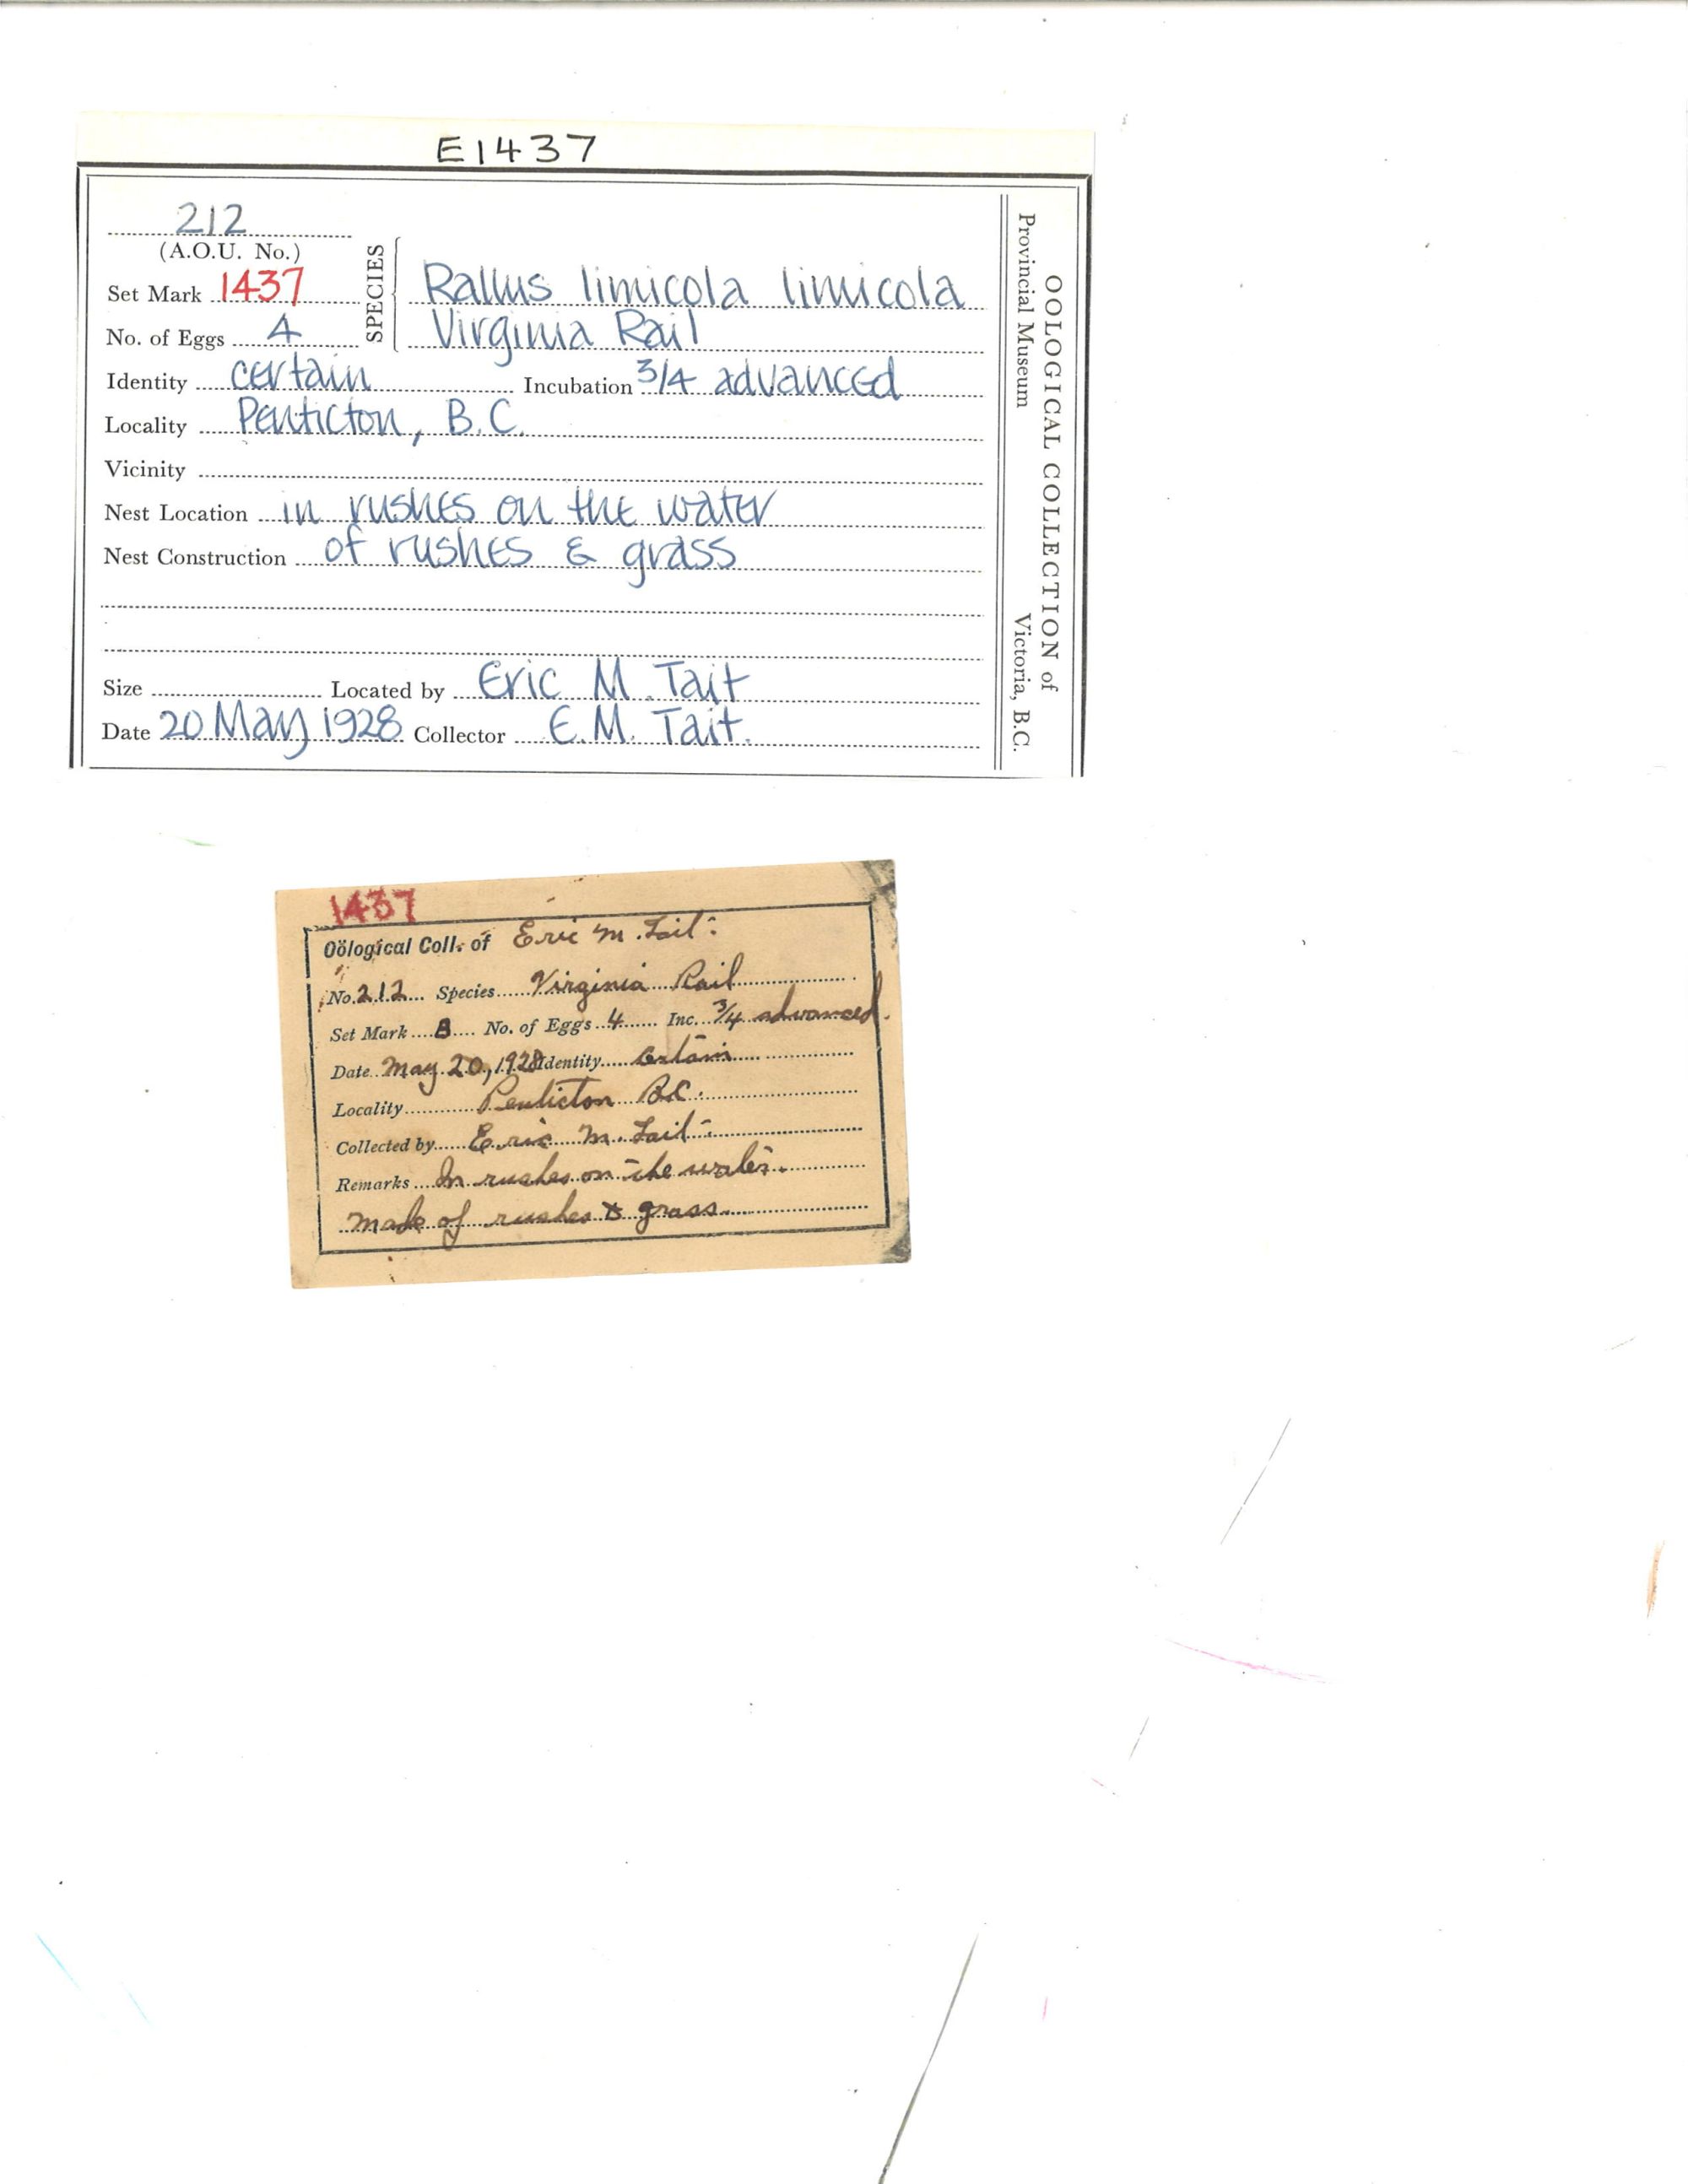 E1437
212
(A.O.U. No.)
Set Mark 1437
No. of Eggs 4
SPECIES
Rallus limicola limicola
Virginia Rail
Identity certain Incubation 3/4 advanced
Locality Penticton, B.C.
Vicinity
Nest Location in rushes on the water
Nest Construction of rushes & grass
Size Located by Eric M. Tait
Date 20 May 1928 Collector E.M. Tait.
OOLOGICAL COLLECTION of
Provincial Museum Victoria, B.C.
1437
Oölogical Coll. of Eric M. Tait
No. 212 Species Virginia Rail
Set Mark B No. of Eggs 4 Inc. 3/4 advanced.
Date May 20, 1928 Identity Certain
Locality Penticton B.C.
Collected by Eric M. Tait
Remarks In rushes on the water.
made of rushes & grass